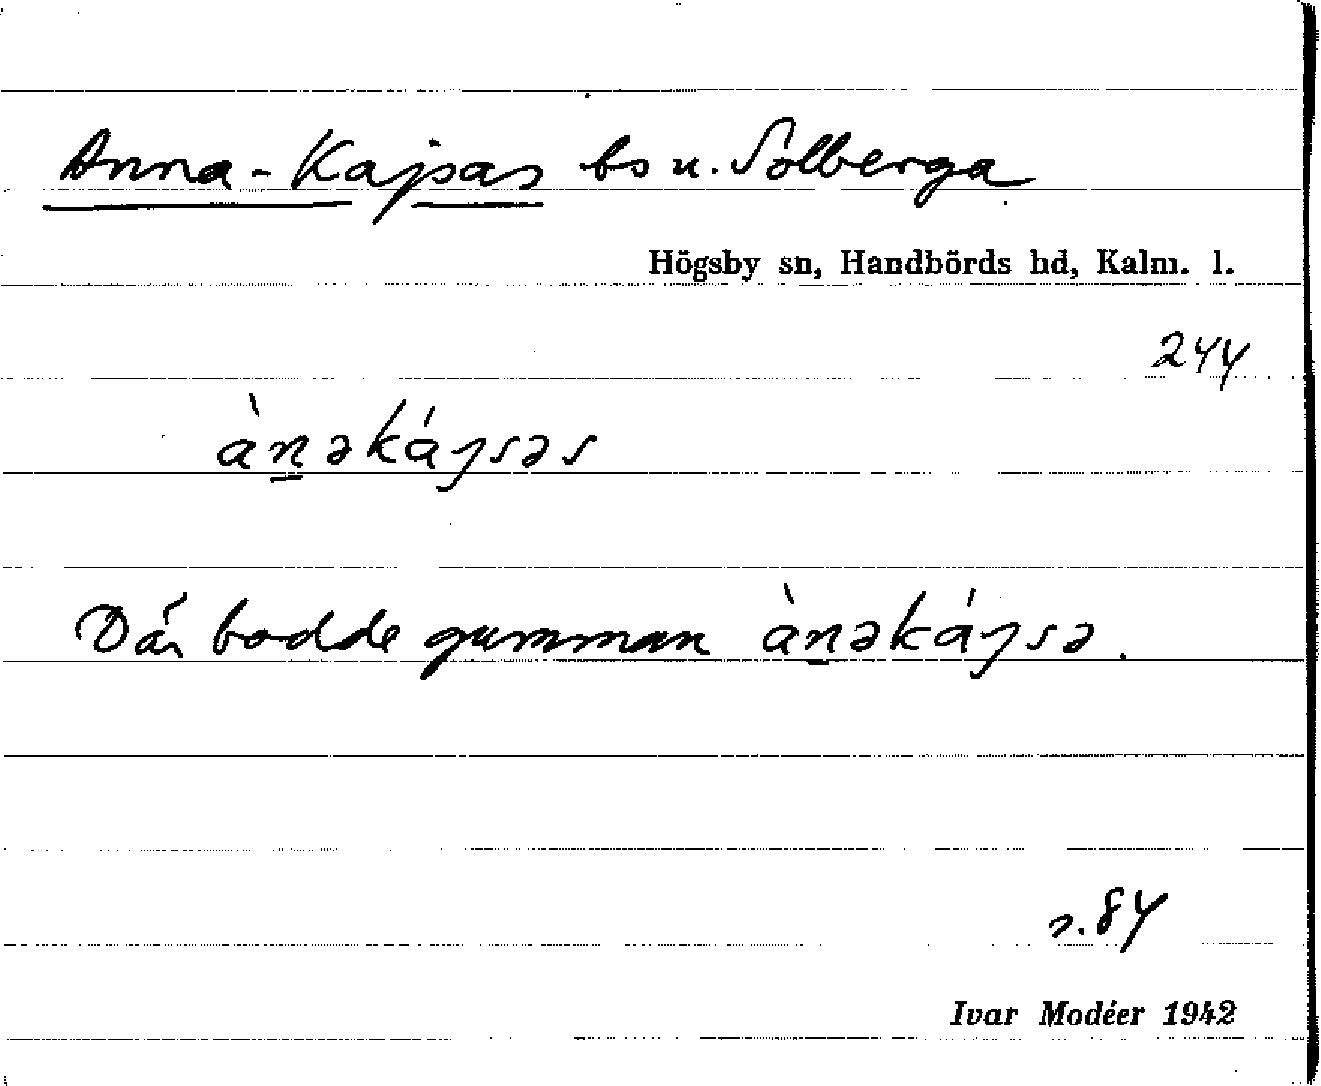 Anna-Kajsas bs u. Solberga
Högsby sn, Handbörds hd, Kalm. l.
244
àn̲əkájsəs
Där bodde gumman àn̲əkájsə.
s. 84
Ivar Modéer 1942